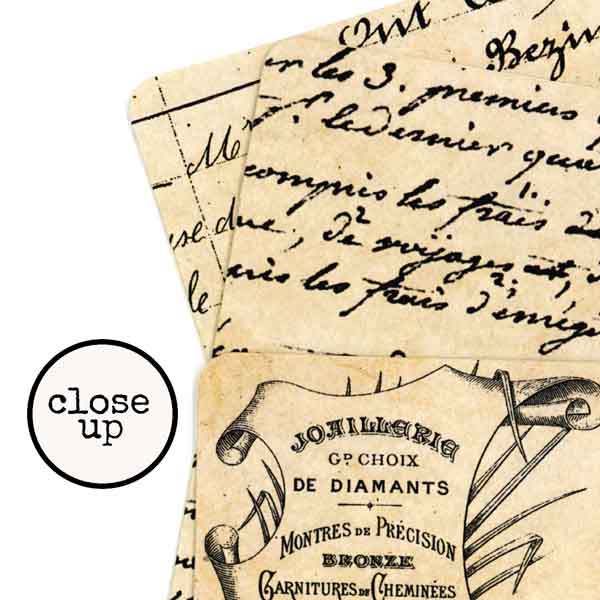 Ont
Bezin
les 3. premiers
le dernier quar
compris les frais de
due, de voyages et,
pris les frais d'émig
M
use du
le
close
up
JOAILLERIE
GD CHOIX
DE DIAMANTS
MONTRES DE PRÉCISION
BRONZE
GARNITURES DE CHEMINÉES